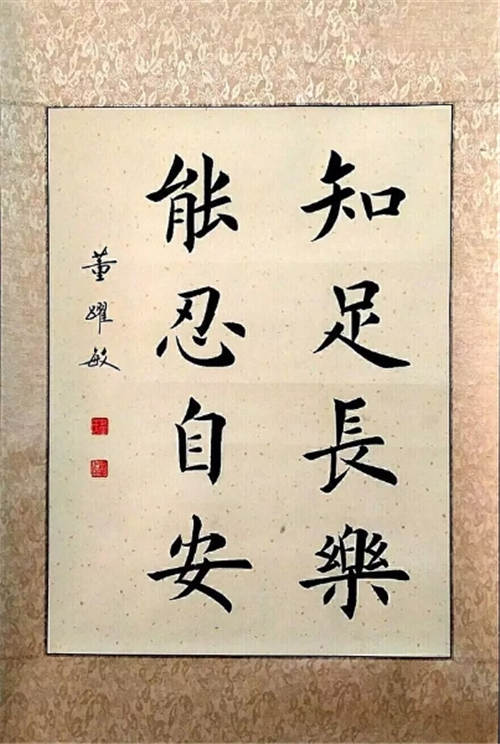 知足長樂
能忍自安
董躍敏